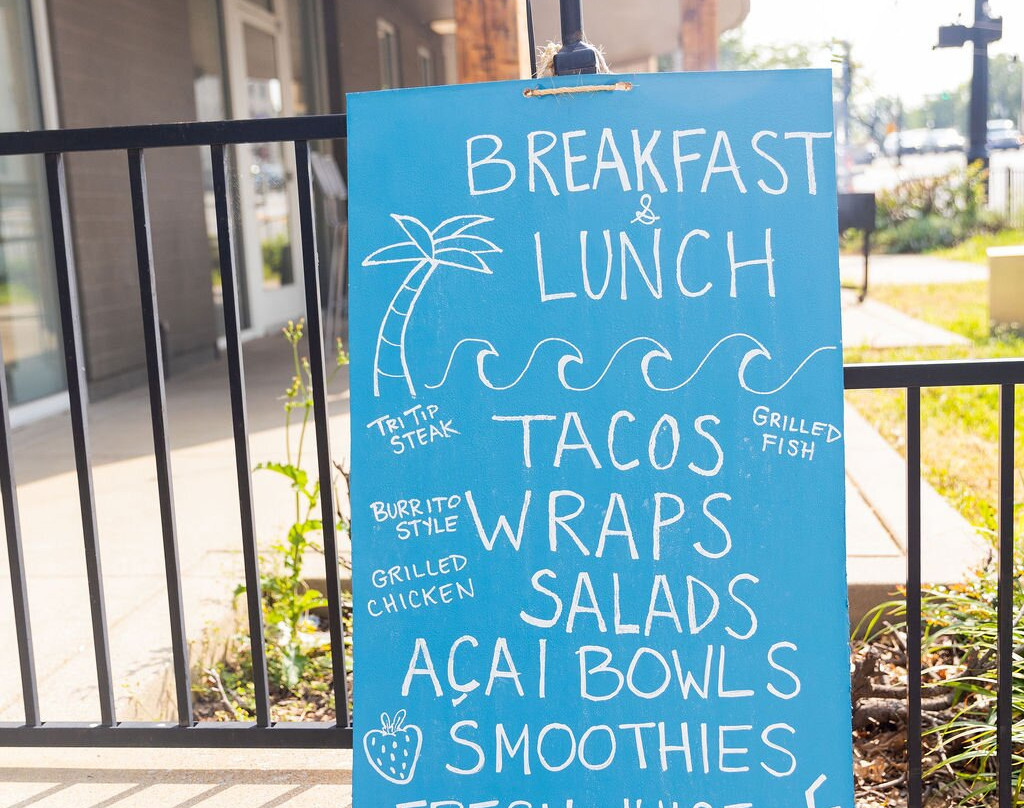 BREAKFAST
&
LUNCH
TRI TIP
STEAK
TACOS
GRILLED
FISH
BURRITO
STYLE
WRAPS
GRILLED
CHICKEN
SALADS
AÇAI BOWLS
SMOOTHIES
FRESH JUICE